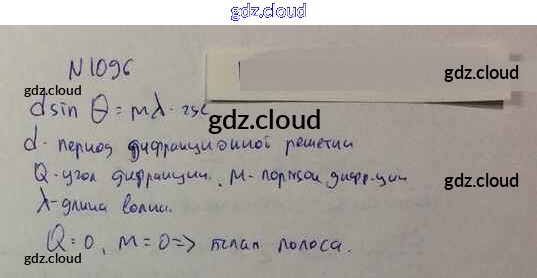 gdz.cloud
N1096
gdz.cloud
gdz.cloud
gdz.cloud
d sin θ = mλ -
gdz.cloud
d - период дифракционной решетки
Q - угол дифракции. m - порядок дифр-ции
gdz.cloud
gdz.cloud
λ - длина волны.
Q = 0, m = 0 => полоса.
gdz.cloud